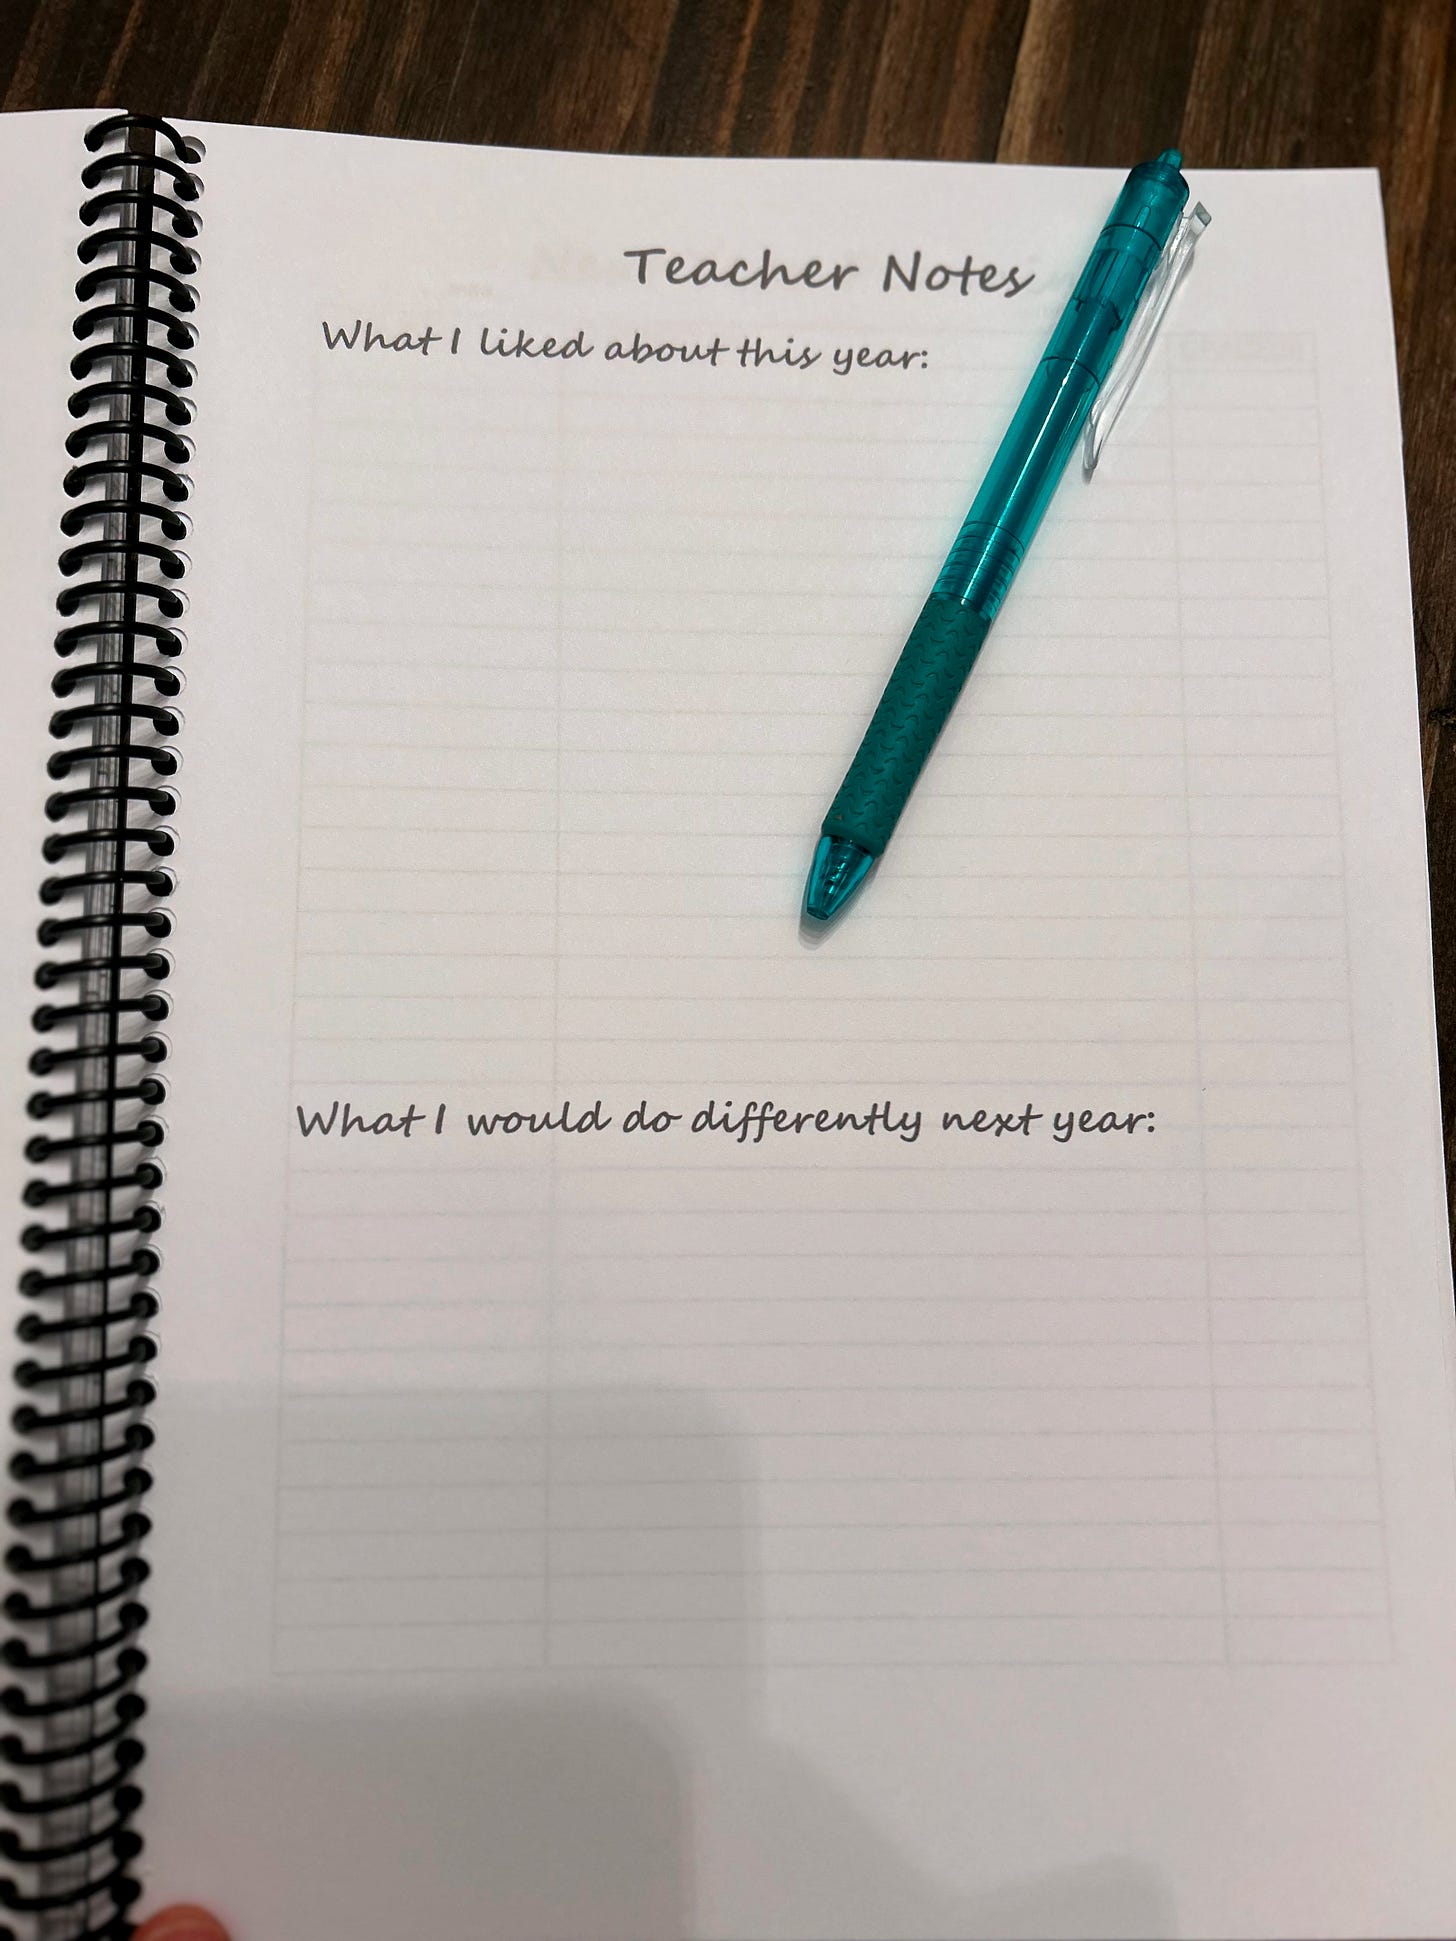 Teacher Notes
What I liked about this year:
What I would do differently next year: